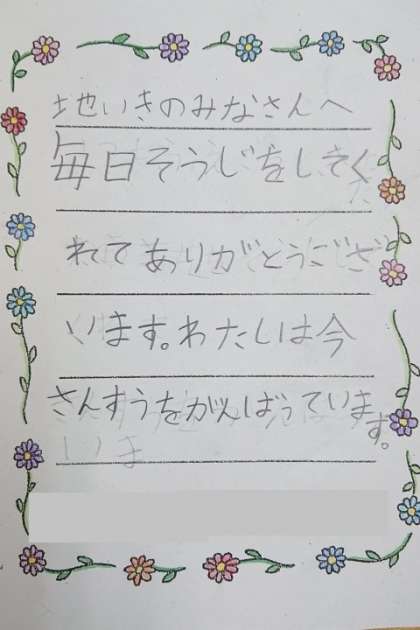 地いきのみなさんへ
毎日そうじをしてく
れてありがとうござ
います。わたしは今
さんすうをがんばっています。